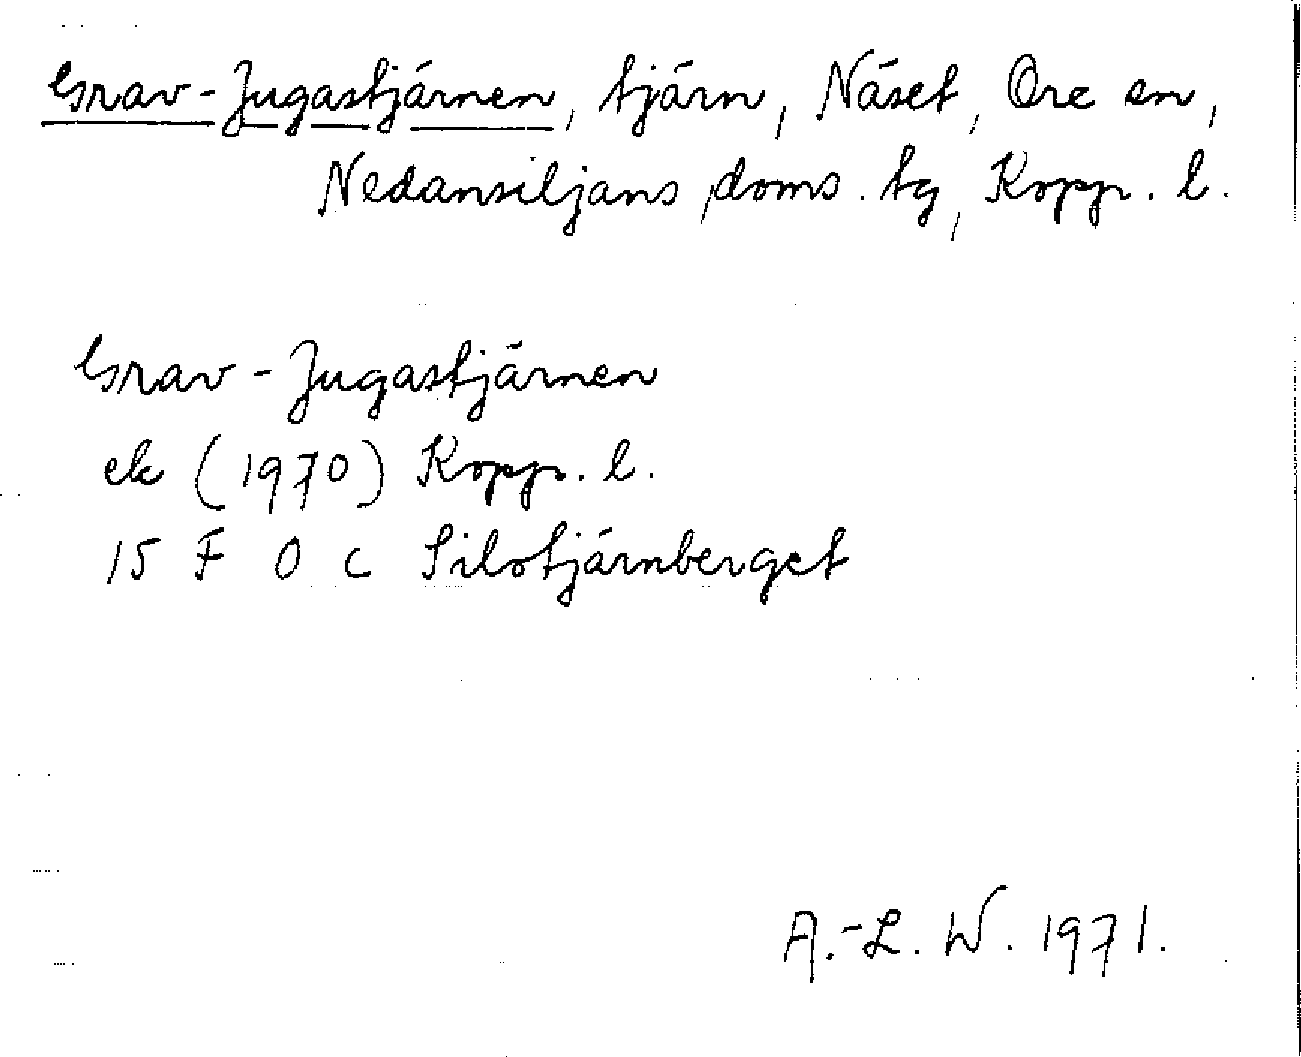 Grav-Jugastjärnen, tjärn, Näset, Ore sn,
Nedansiljans doms. tg, Kopp. l.
Grav-Jugastjärnen
ek (1970) Kopp. l.
15 F 0 c Silotjärnberget
A.-L. W. 1971.